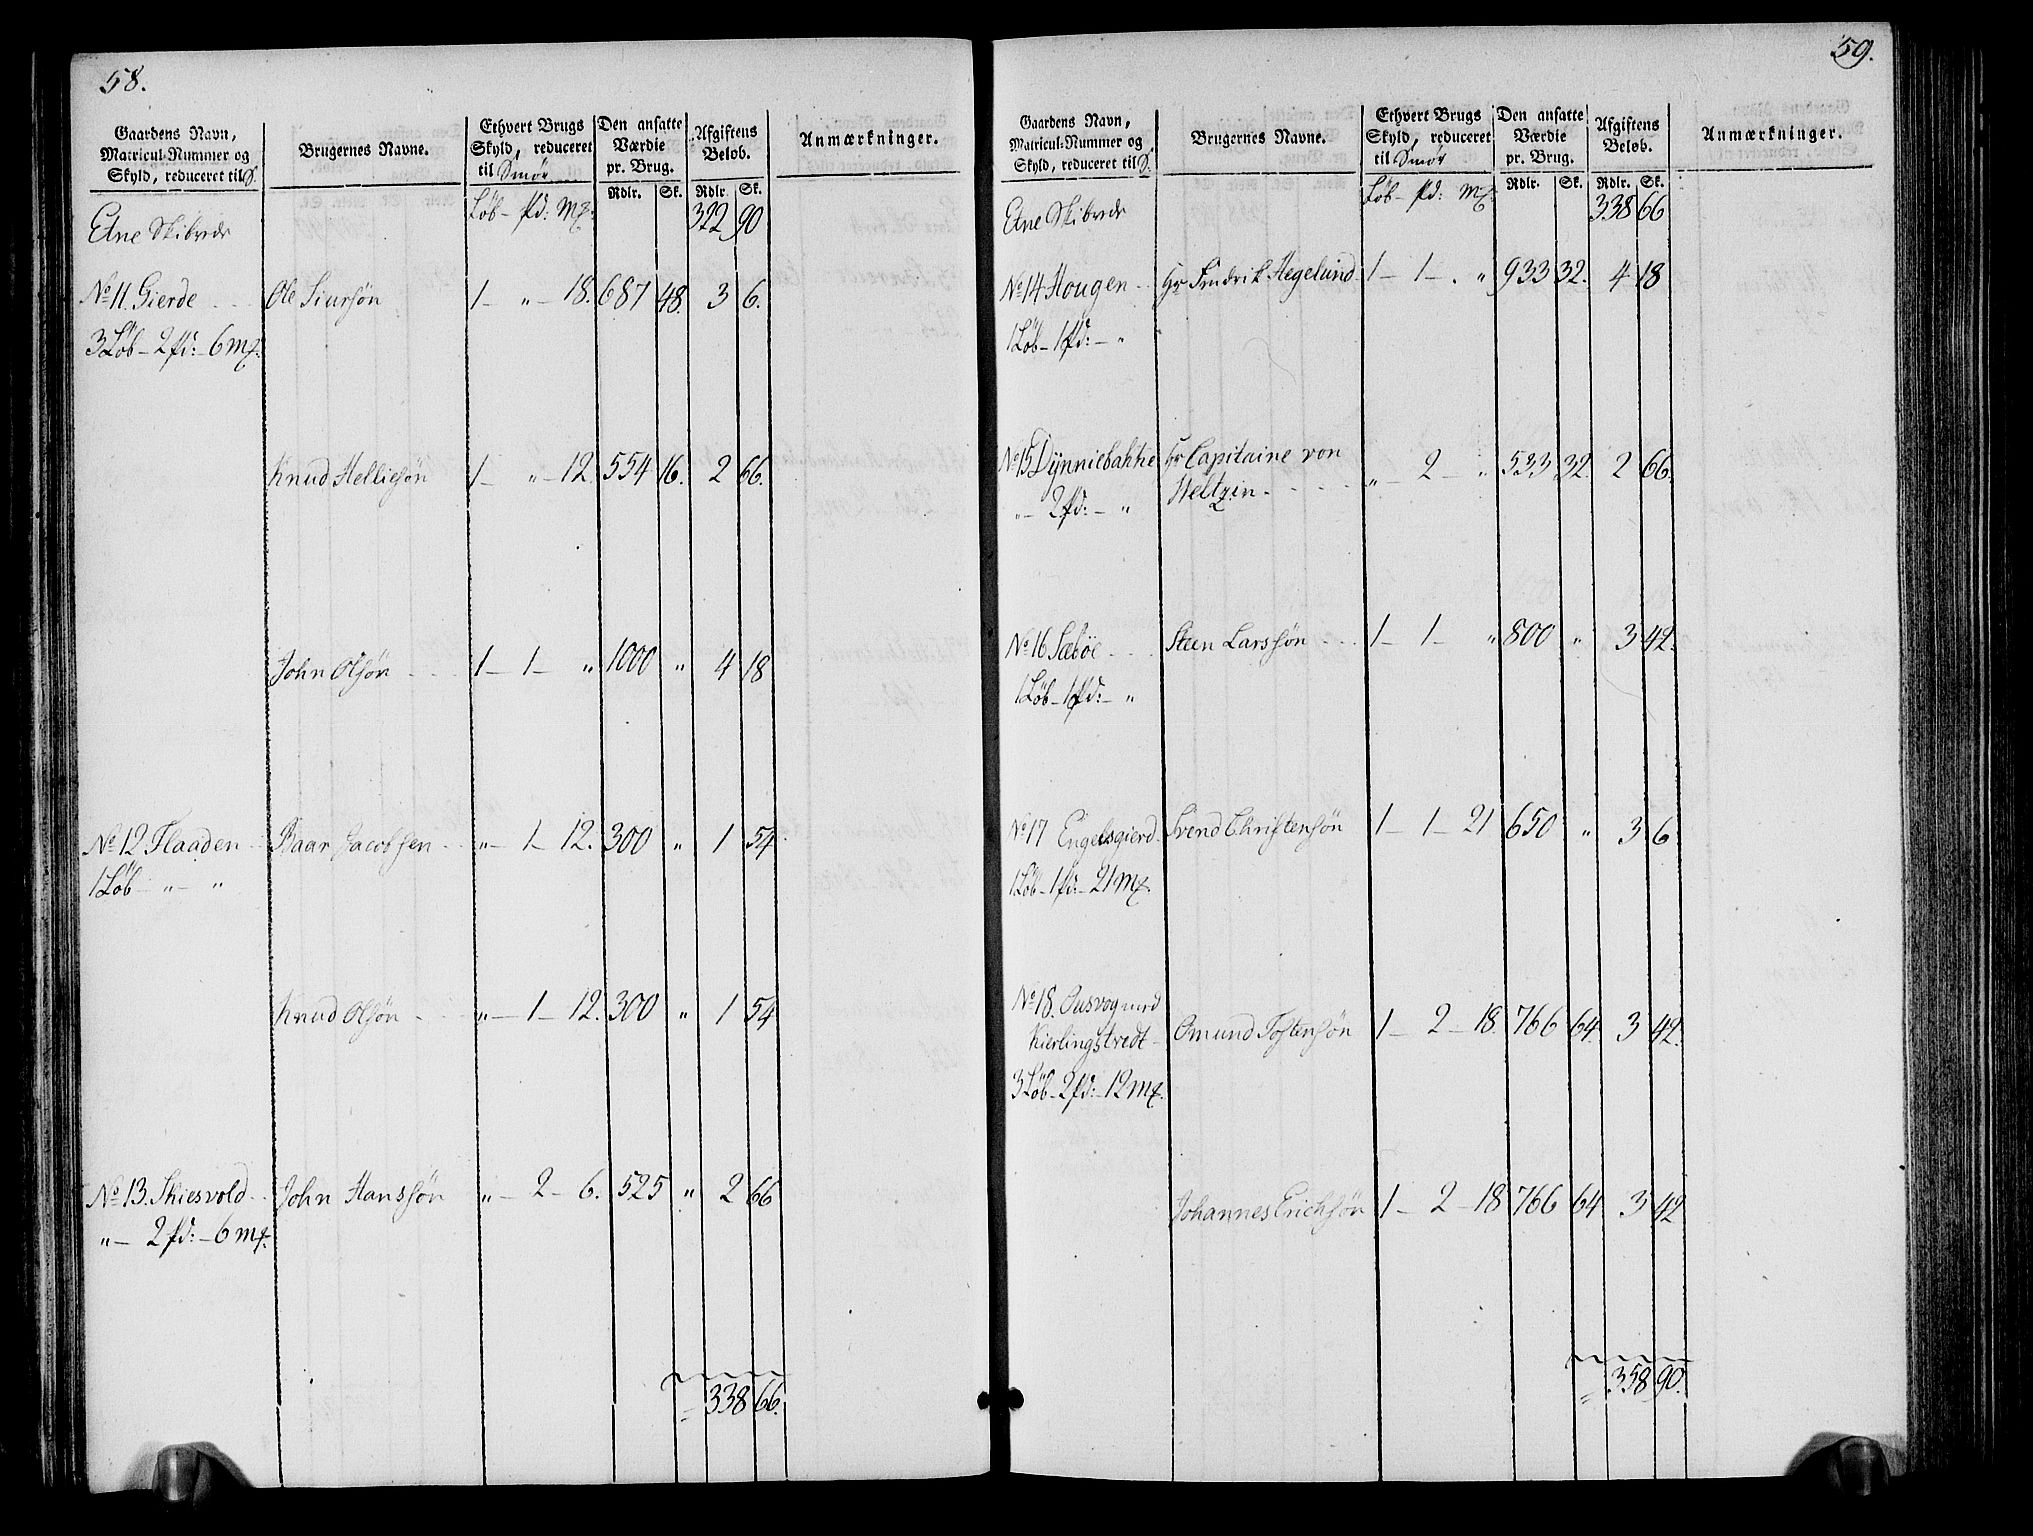 58.
Gaardens Navn, Matricul-Nummer og Skyld, reduceret til S. | Brugernes Navne. | Ethvert Brugs Skyld, reduceret til Smör | Den ansatte Værdie pr. Brug. | Afgiftens Beløb. | Anmærkninger.
Löb - pd: mk: | Rdlr. | Sk. | Rdlr. | Sk.
Etne Skibrede 322 90
No 11 Gierde Ole Siursøn 1 - " - 18. 687 48. 3 6.
3 Løb - 2 pd: - 6 mk.
Knud Helliesøn 1 - " - 12. 554 16. 2 66.
John Olsøn 1 - 1 - " 1000 " 4 18
No 12 Flaaden Baar Jacobsen " - 1 - 12. 300 " 1 54
1 Løb - " - "
Knud Olsøn " - 1 - 12. 300 " 1 54
No 13 Skiesvold John Hanssøn " - 2 - 6. 525 " 2 66
" - 2 pd: - 6 mk.
338 66.
59.
Gaardens Navn, Matricul-Nummer og Skyld, reduceret til S. | Brugernes Navne. | Ethvert Brugs Skyld, reduceret til Smör | Den ansatte Værdie pr. Brug. | Afgiftens Beløb. | Anmærkninger.
Löb - pd: mk: | Rdlr. | Sk. | Rdlr. | Sk.
Etne Skibrede 338 66
No 14 Hougen Hr Fredrik Hegelund 1 - 1 - " 933 32. 4 18
1 Løb - 1 pd: - "
No 15 Dÿnniebakke Hr Capitaine von " - 2 - " 533 32. 2 66.
" - 2 pd: - " Heltzen
No 16 Sæböe Steen Larssøn 1 - 1 - " 800 " 3 42.
1 Løb - 1 pd: - "
No 17 Engelsgierd Svend Christensøn 1 - 1 - 21 650 " 3 6
1 Løb - 1 pd: - 21 mk.
No 18. Ousvog med
Kierlingstvedt - Omund Tostensøn 1 - 2 - 18. 766 64. 3 42.
3 Løb - 2 pd: - 12 mk.
Johannes Erichsøn 1 - 2 - 18 766 64 3 42
358 90.